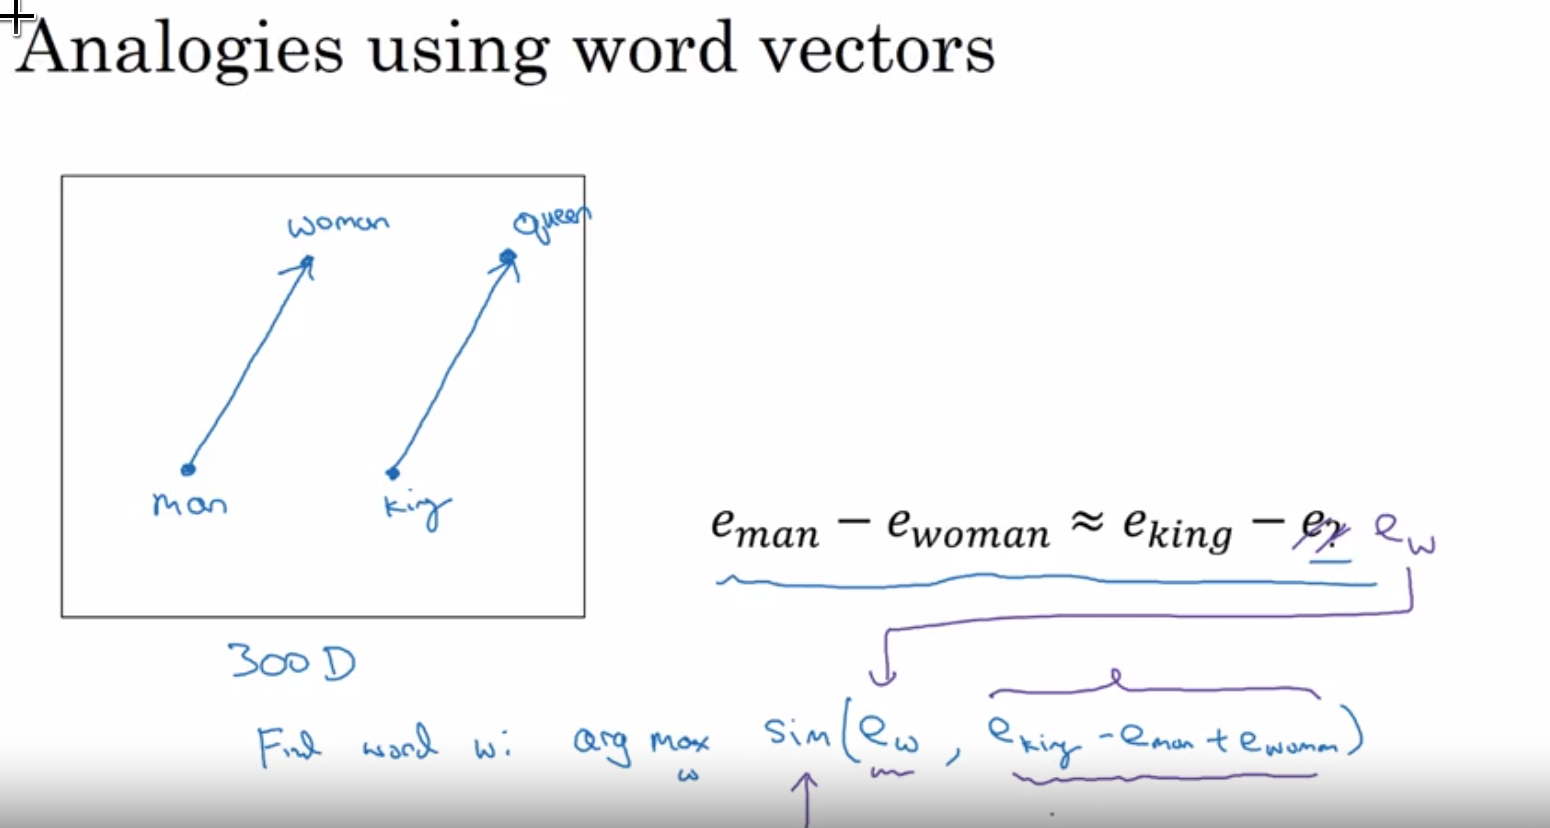 Analogies using word vectors
woman
Queen
man
king
e_man − e_woman ≈ e_king − e_? e_w
300 D
Find word w: arg max_w sim(e_w, e_king - e_man + e_woman)